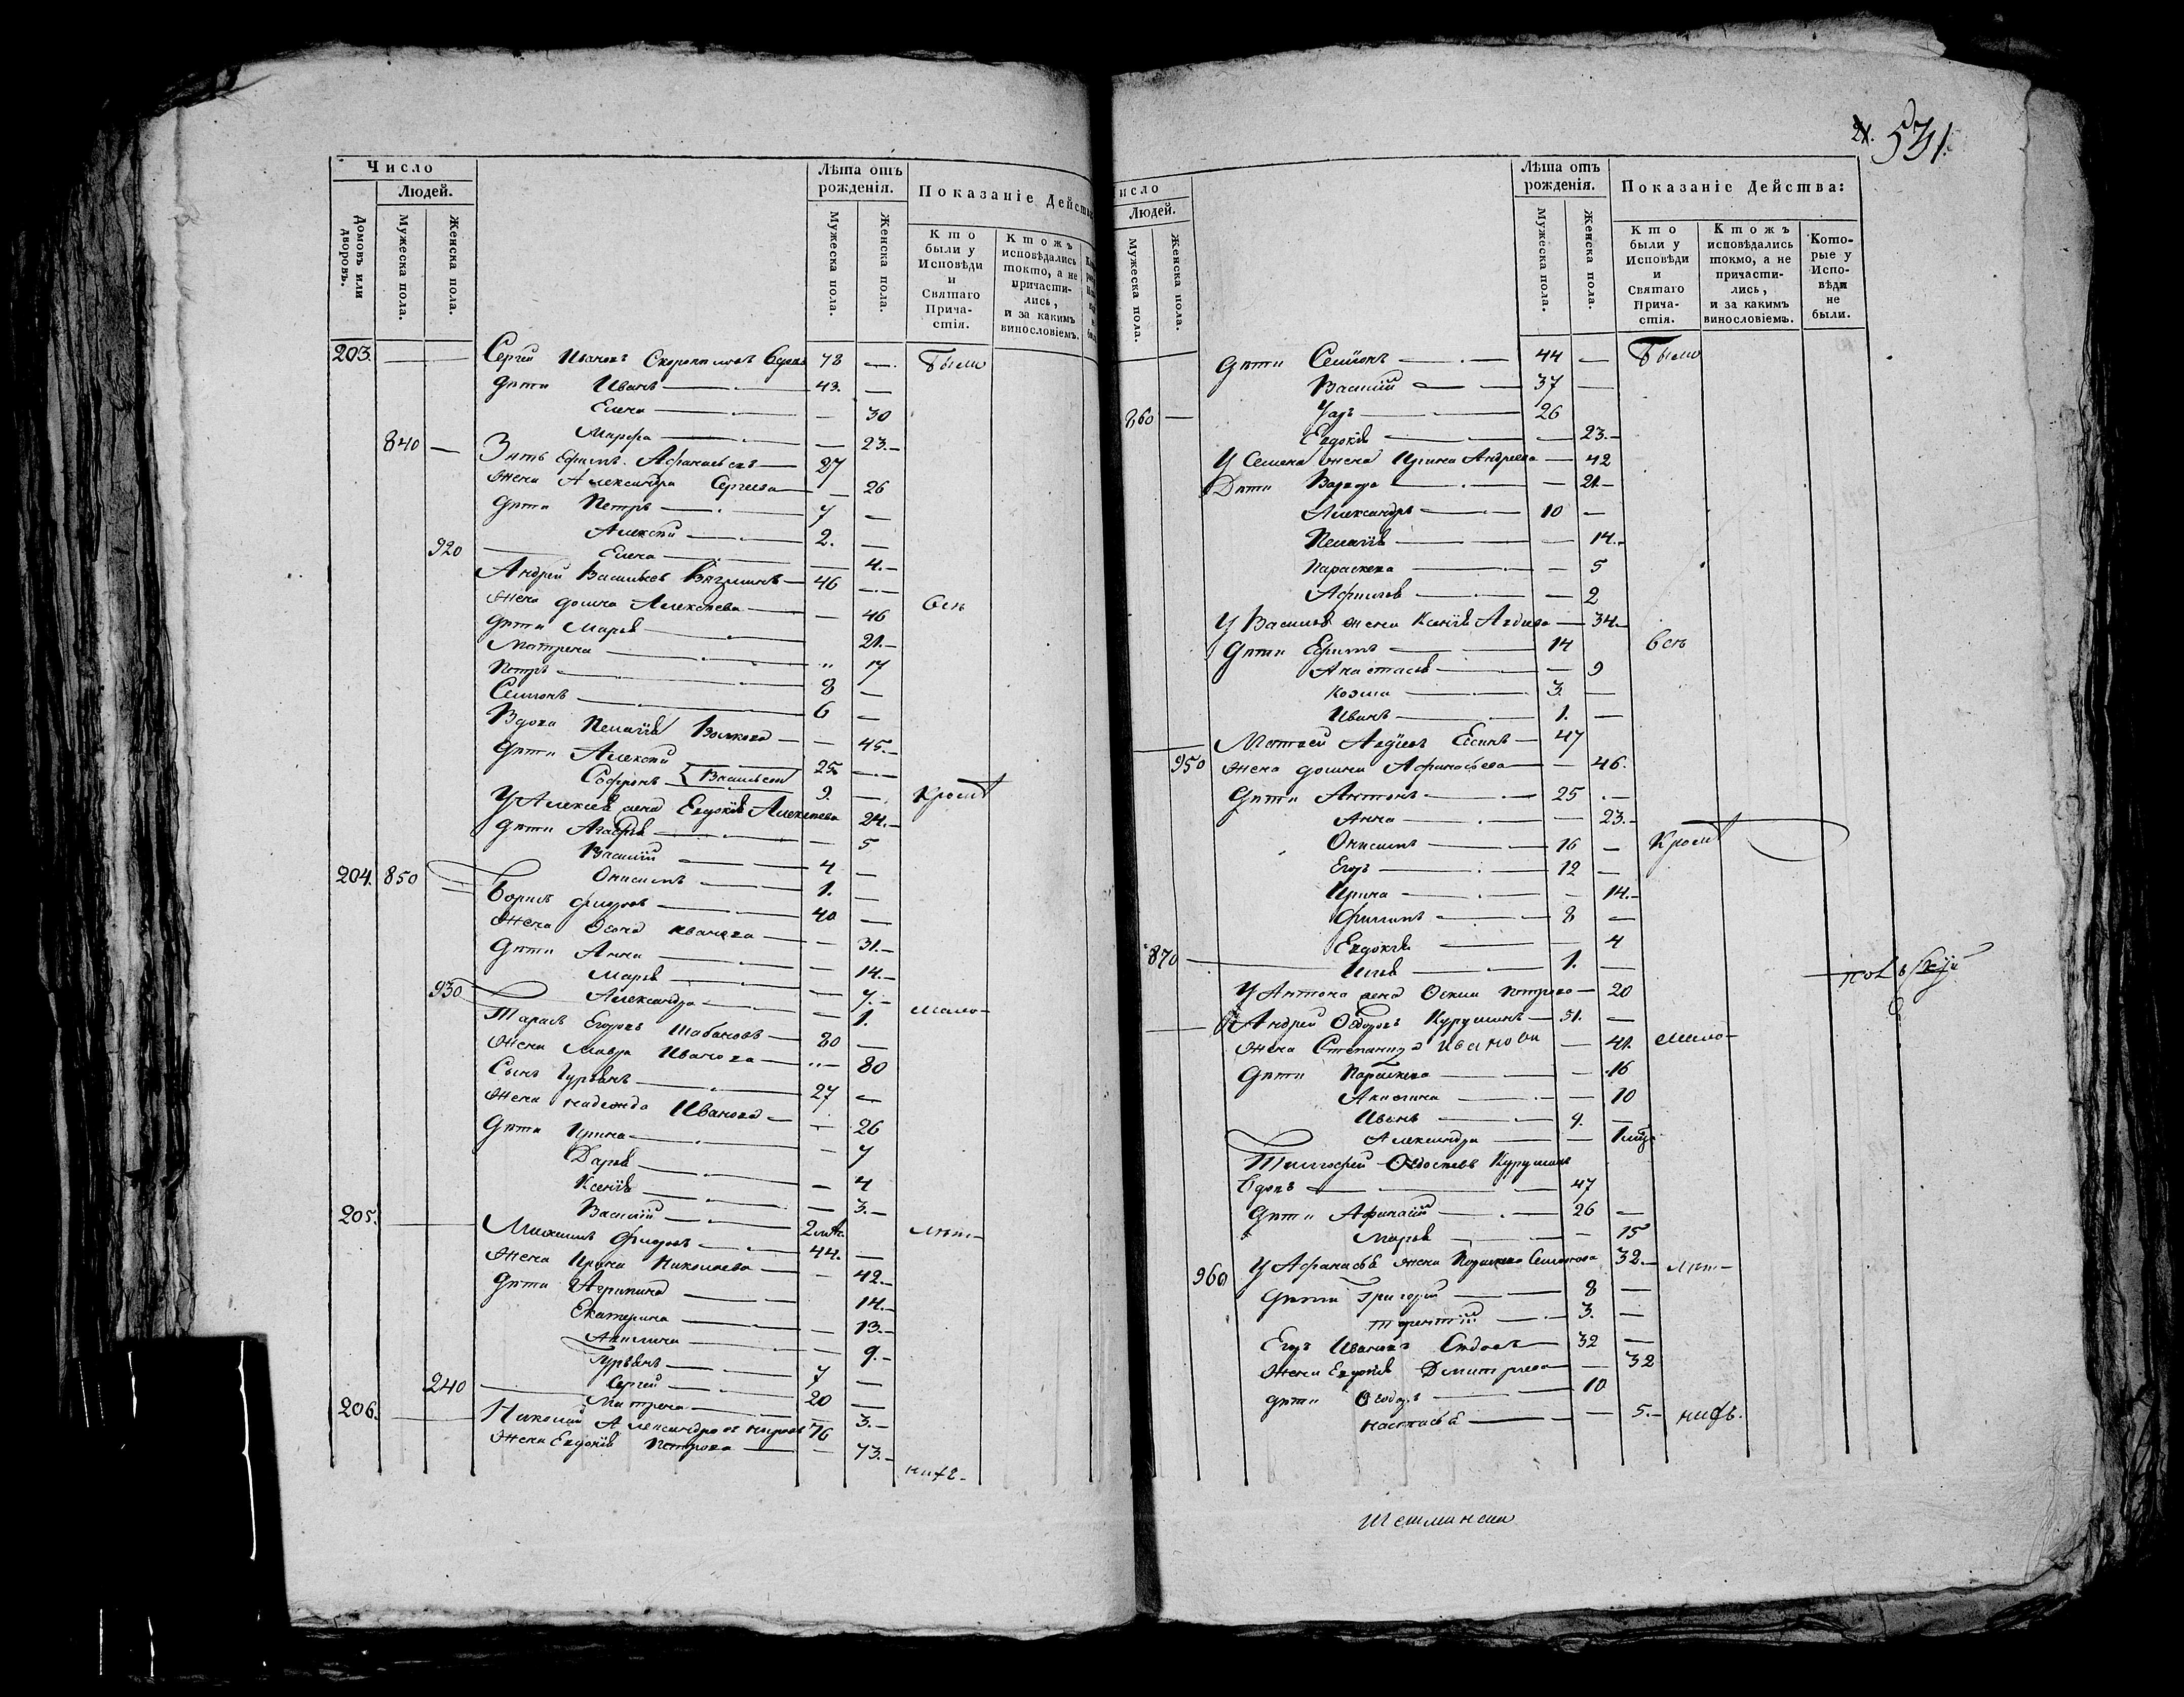 Число
Людей.
Домовъ или дворовъ.
Мужеска пола.
Женска пола.
Лѣта отъ рожденія.
Мужеска пола.
Женска пола.
Показаніе Дейст
Кто были у Исповѣди и Святаго Прича-стія.
Ктожъ исповѣдались токмо, а не причасти-лись, и за какимъ винословіемъ.
203. — — Сергей Ивановъ вдовъ 78 — были
дѣти Иванъ 43. —
Елена — 30
Марфа — 23. —
840 — Зять Ефимъ Афанасьевъ 27
жена Александра Сергеева — 26
дѣти Петръ 7 —
Алексѣй 2. —
920 Елена — 4. —
Андрей Васильевъ 46 —
жена домна Алексѣева — 46 всѣ
дѣти Марья 21. —
Матрена „ 17
Петръ 8 —
Семионъ 6 —
Вдова Пелагія Волкова — 45. —
дѣти Алексѣй 25 —
Софронъ Васильевы 9. — Кромѣ
У Алексея жена Евдокія Алексѣева 24. —
дѣти Агафья — 5
Василий 4 —
204. 850 Онисимъ 1. —
Борисъ Фиодоровъ 40 —
жена Ивановa — 31. —
дѣти Анна — 14. —
Марья — 7. —
930 Александра — 1. мало-
Тарасъ Егоровъ Шабановъ 80 —
жена Мавра Иванова „ — 80
Сынъ Гурьянъ 27 —
жена надежда Иванова — 26
дѣти Ирина — 7
Дарья — 4
Ксенія — 3. —
205. Василий 2 лѣт-
Фиодоровъ 44. —
жена Ирина Николаева — 42. —
дѣти Агрипина 14. —
Екатерина — 13. —
Акилина — 9. —
Гурьянъ 7 —
240 Сергей 20 —
206. Матрена — 3. —
Николай Александровъ 76
жена Евдокія Петрова — 73. —
нихъ-
21. 531.
исло
Людей.
Мужеска пола.
Женска пола.
Лѣта отъ рожденія.
Мужеска пола.
Женска пола.
Показаніе Действа:
Кто были у Исповѣди и Святаго Прича-стія.
Ктожъ исповѣдались токмо, а не причасти-лись, и за какимъ винословіемъ.
Кото-рые у Испо-вѣди не были.
дѣти Семионъ 44 — были
Василий 37 —
860 — Уаръ 26
Евдокія — 23. —
У Семена жена Ирина Андреева — 42
Дѣти Варвара — 21. —
Александръ 10 —
Пелагія — 14. —
Параскева — 5
Афимья — 2
У Василья жена Ксенія Авдиева — 34. —
дѣти Ефимъ 14 всѣ
Анастасья — 9
Козма 3. —
Иванъ 1. —
Матвей Авдіевъ Есинъ 47
950 жена домна Афанасьева — 46.
дѣти Антонъ 25 —
Анна — 23. —
Онисимъ 16 — Кромѣ
Егоръ 12 —
Ирина — 14. —
Филипъ 8 —
Евдокія — 4
870 Илья 1. —
У Антона жена Петрова — 20
Андрей Ѳедоровъ Курушинъ 51. —
жена Степанида Иванова — 41. мало-
дѣти Параскева — 16
Акилина — 10
Иванъ 4. —
Александра — 1
Тимофей Курушинъ
вдовъ 47
дѣти Афанасий 26 —
Марья — 15
У Афанасья жена Параскева Семенова 32. — лѣт-
960 дѣти Григорий 8 —
Терентий 3. —
Егоръ Ивановъ 32 —
жена Евдокія Дмитриева — 32
дѣти Ѳеодоръ 10
настасья — 5. — нихъ.